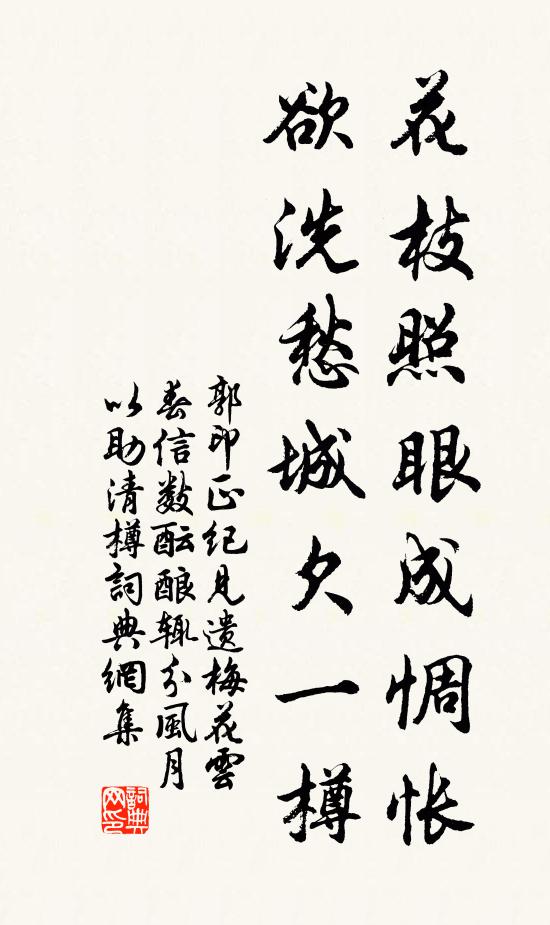 花枝照眼成惆怅
欲洗愁城欠一樽
郭印正纪见遗梅花云
春信数酝酿辄分風月
以助清樽詞典網集
詞典网印